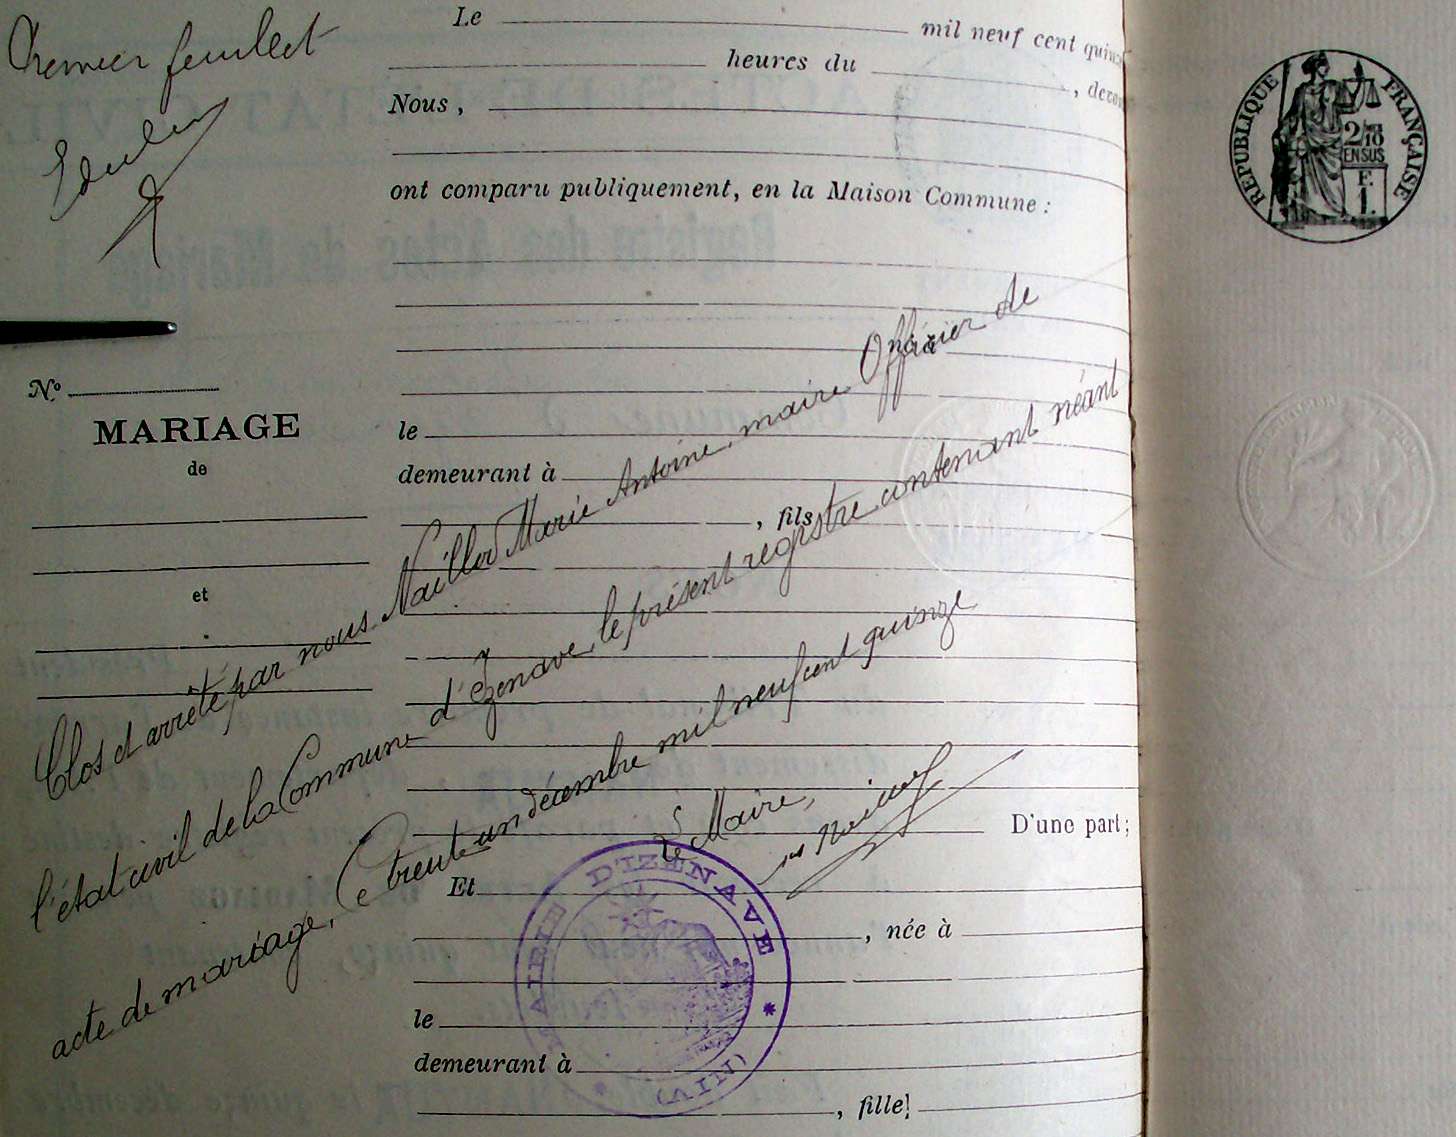 Premier feuillet
Le mil neuf cent quinze
heures du , devant
Nous ,
ont comparu publiquement, en la Maison Commune :
RÉPUBLIQUE FRANÇAISE
2/10
EN SUS
F.
1.
No
MARIAGE
de
et
le
demeurant à
, fils
D'une part ;
Et
, née à
le
demeurant à
, fille
Clos et arrêté par nous Marie Antoine, maire Officier de
l'état civil de la Commune d'Izenave, le présent registre contenant néant
acte de mariage, Ce trente un décembre mil neuf cent quinze
Le Maire,
MAIRIE D'IZENAVE
(AIN)